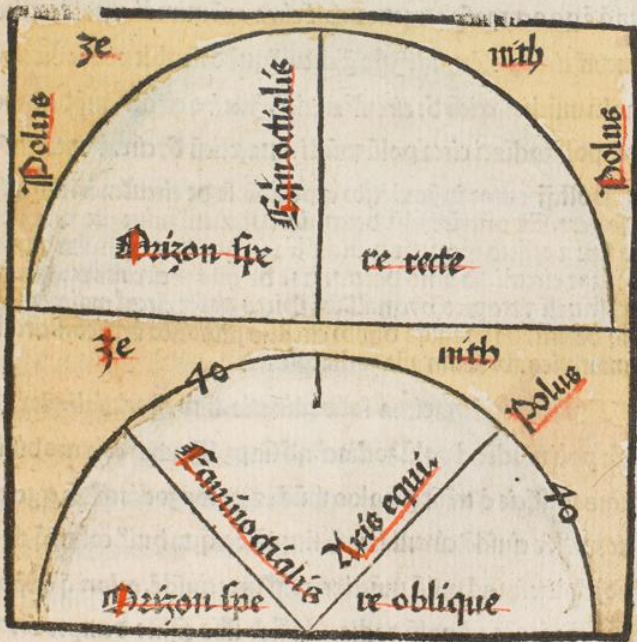 ze nith
Polus
Equinoctialis
Polus
Orizon spe re recte
ze nith
40
Polus
Equinoctialis
Axis equi.
40
Orizon spe re oblique